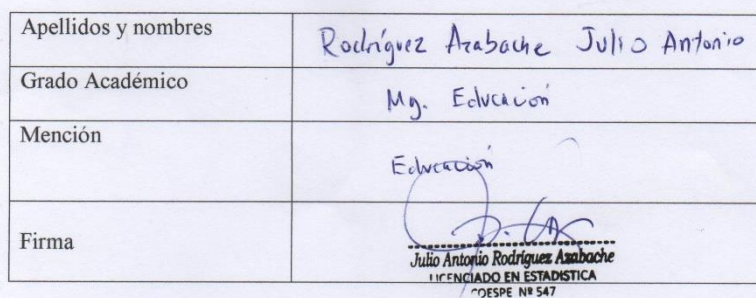 Apellidos y nombres
Rodríguez Azabache Julio Antonio
Grado Académico
Mg. Educación
Mención
Educación
Firma
Julio Antonio Rodríguez Azabache
LICENCIADO EN ESTADISTICA
COESPE Nº 547